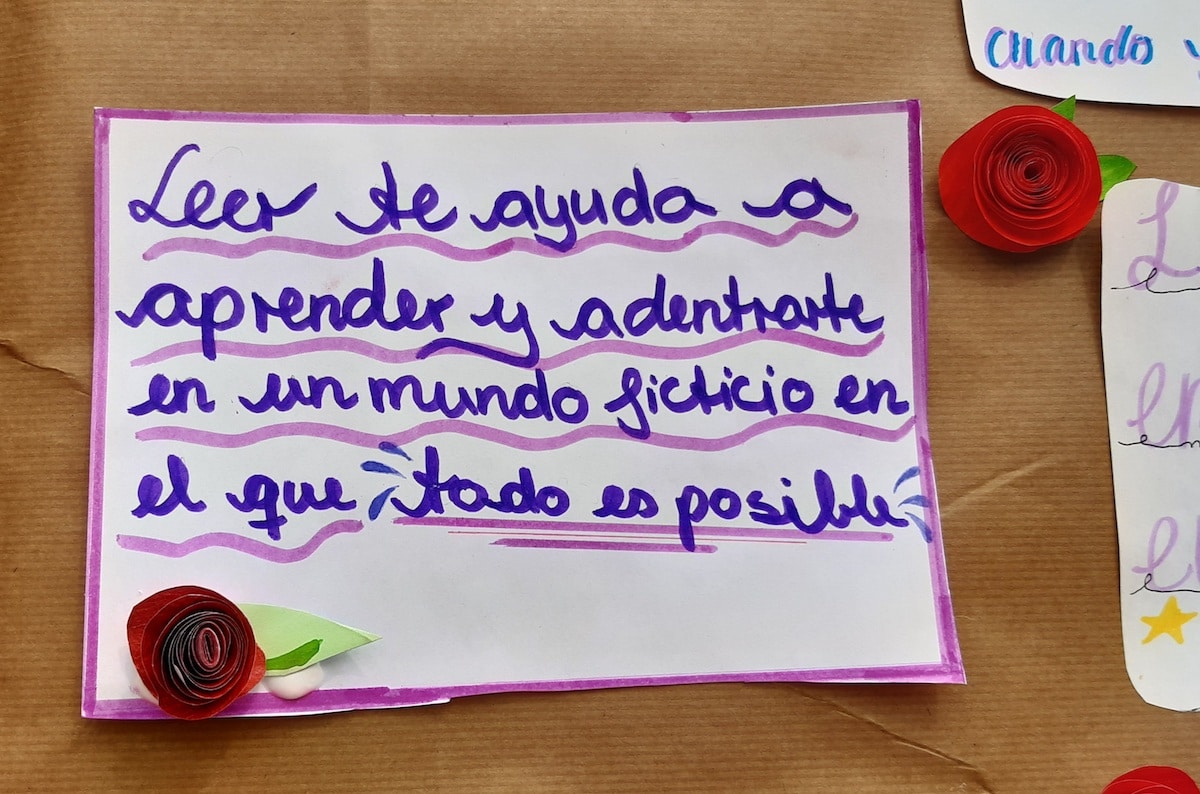 Leer te ayuda a
aprender y adentrarte
en un mundo ficticio en
el que todo es posible
cuando